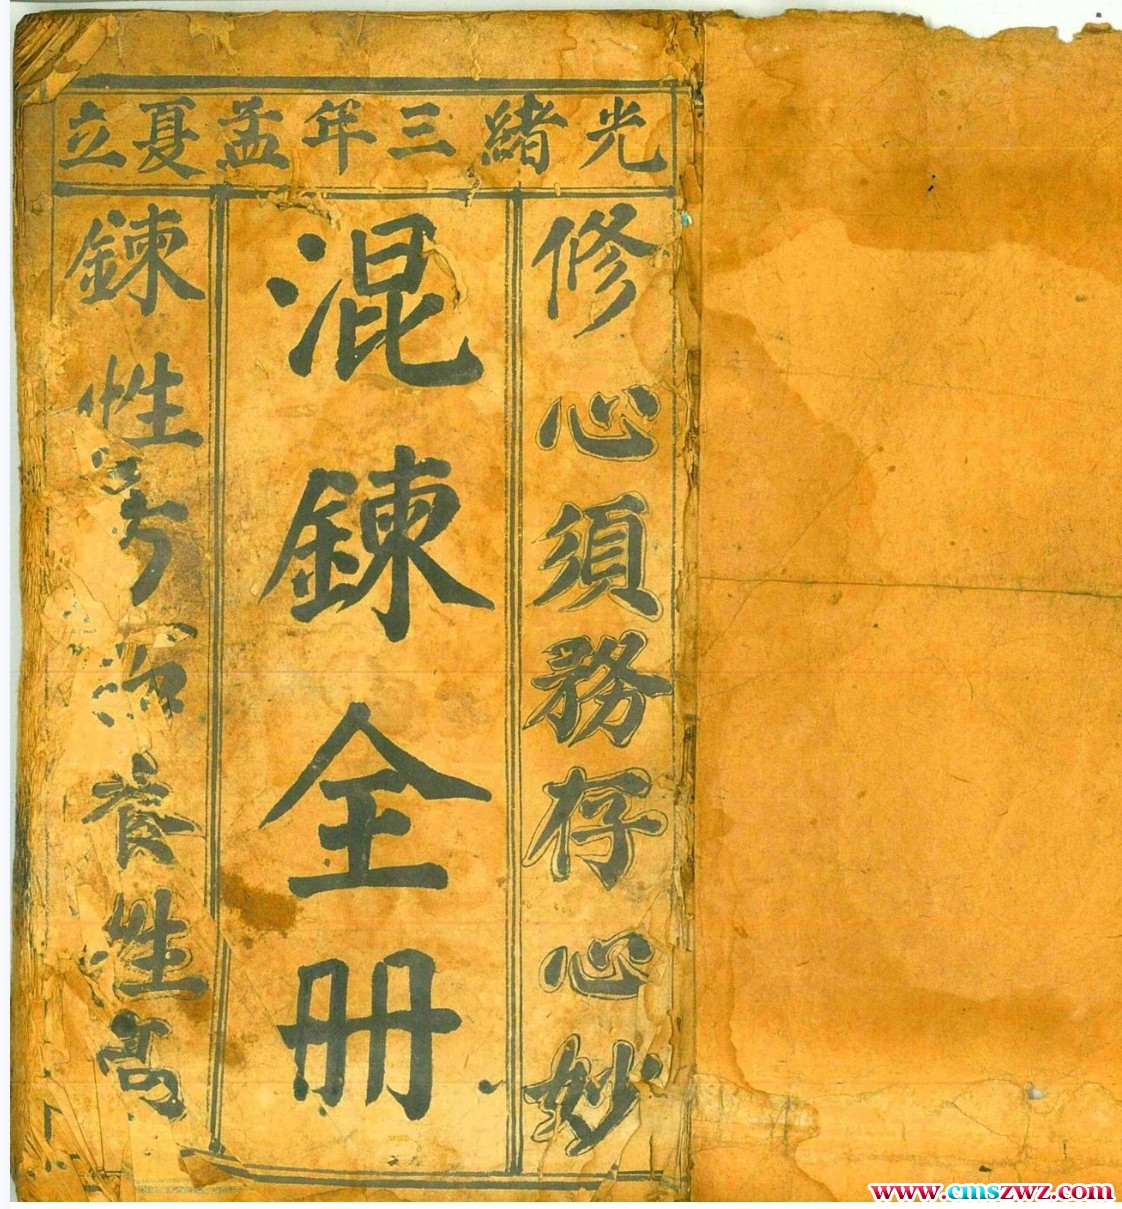 光緒三年孟夏立
修心須務存心妙
混鍊全冊
鍊性 養性高
www.cmszwz.com